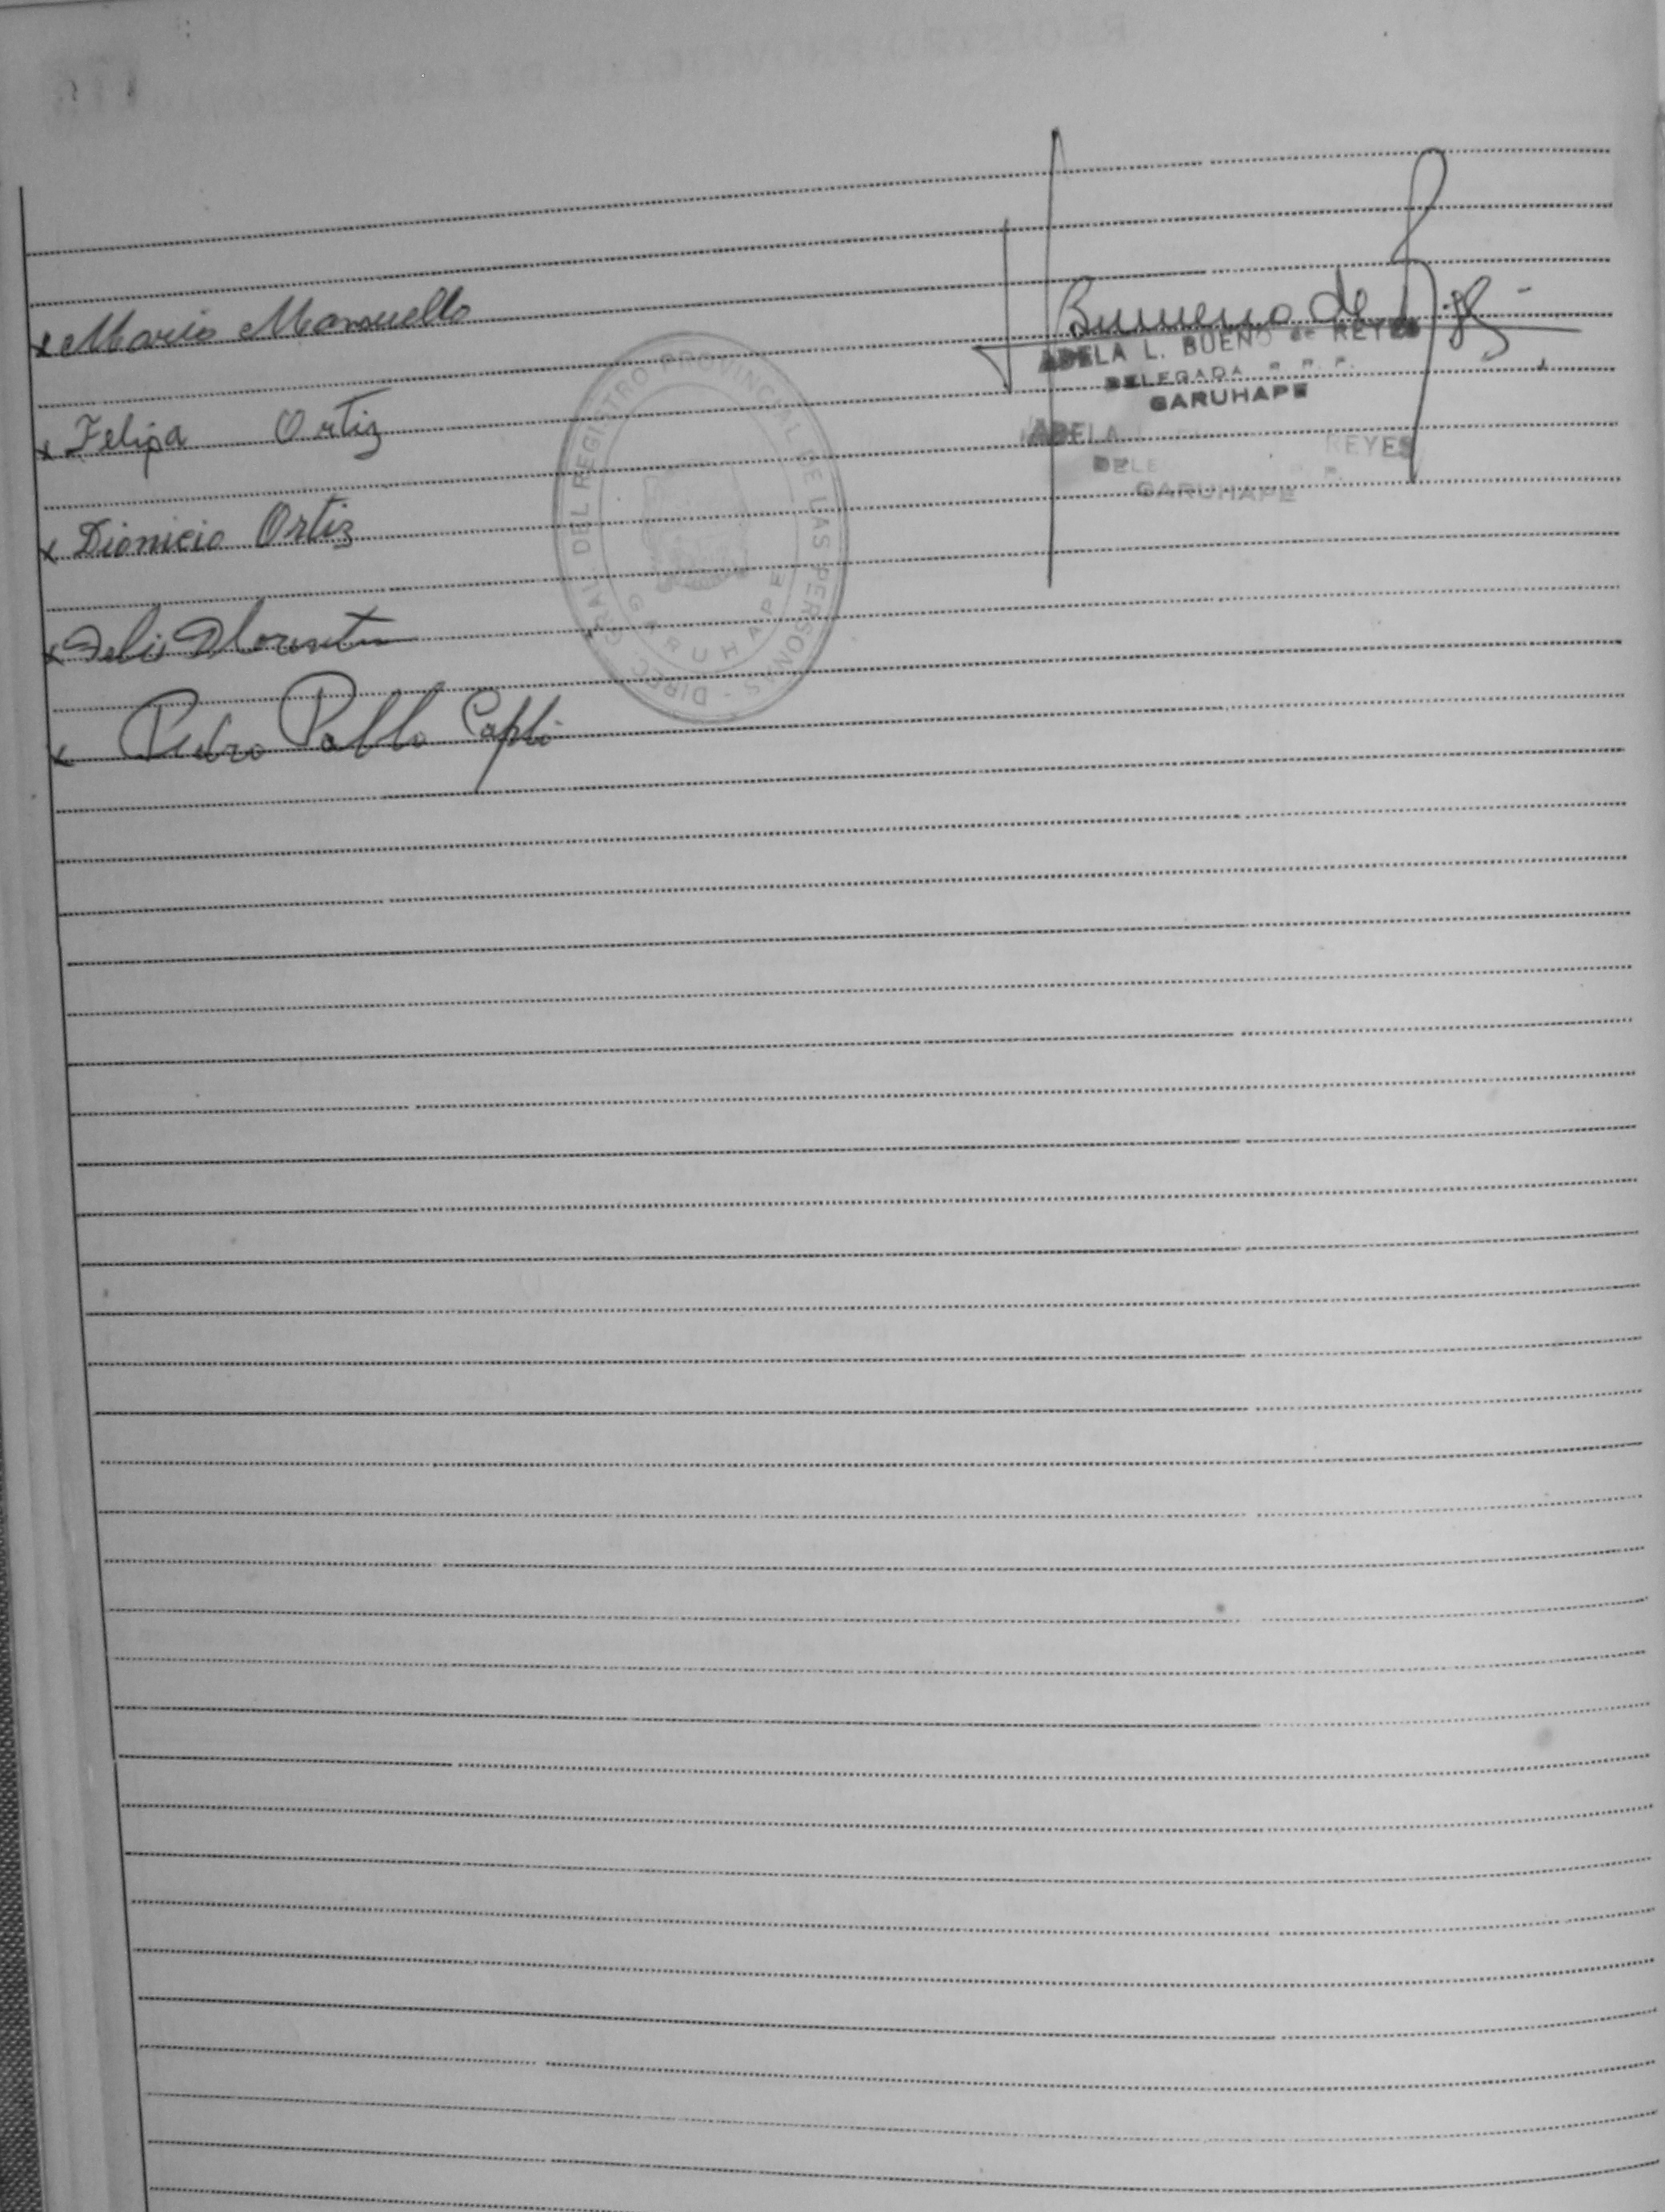 x Mario Mansuello
x Felipa Ortiz
x Dionicio Ortiz
x
x Pedro Pablo
Bueno de
ADELA L. BUENO de REYES
DELEGADA R. P. P.
GARUHAPE
ADELA REYES
DELE
GARUHAPE
DIREC. GRAL. DEL REGISTRO PROVINCIAL DE LAS PERSONAS -
GARUHAPE